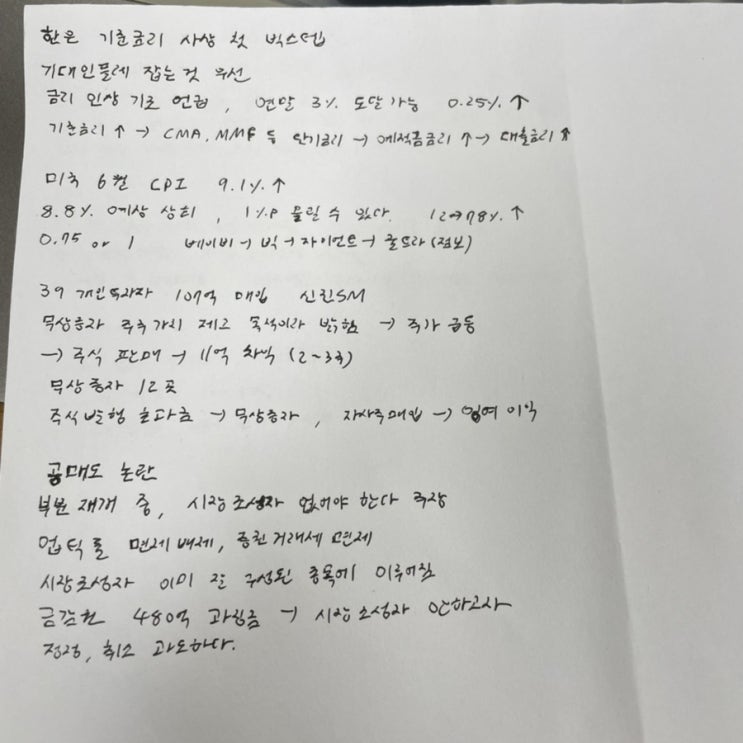 한은 기준금리 사상 첫 빅스텝
기대인플레 잡는것 우선
금리 인상 기조 언급, 연말 3% 도달가능 0.25% ↑
기준금리↑ → CMA, MMF 등 단기금리 → 예적금금리 ↑ → 대출금리 ↑
미국 6월 CPI 9.1% ↑
8.8% 예상 상회, 1%P 올릴 수 있다. 12→78% ↑
0.75 or 1 베이비 → 빅 → 자이언트 → 울트라(점보)
39 개인투자자 107억 매입 신진SM
무상증자 주주가치 제고 목적이라 밝힘 → 주가 급등
→ 주식 판매 → 11억 차익 (2~3주)
무상증자 12곳
주식발행 초과금 → 무상증자, 자사주매입 → 잉여 이익
공매도 논란
부분 재개 중, 시장조성자 없어야 한다 주장
업틱룰 면제 배제, 증권거래세 면제
시장조성자 이미 잘 구성된 종목에 이루어짐
금감원 480억 과징금 → 시장조성자 안하고사
정정, 취소 과도하다.